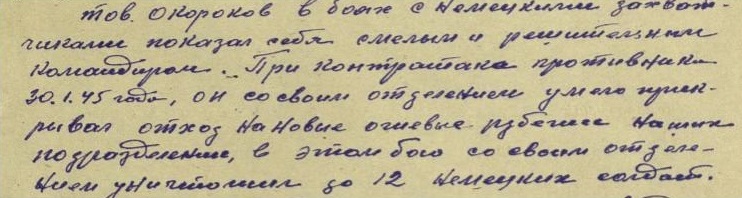 тов. Окороков в боях с немецкими захват-
чиками показал себя смелым и решительным
командиром. При контратаке противника
30.1.45 года, он со своим отделением умело прик-
рывал отход на новые огневые рубежи наших
подразделений, в этом бою со своим отделе-
нием уничтожил до 12 немецких солдат.